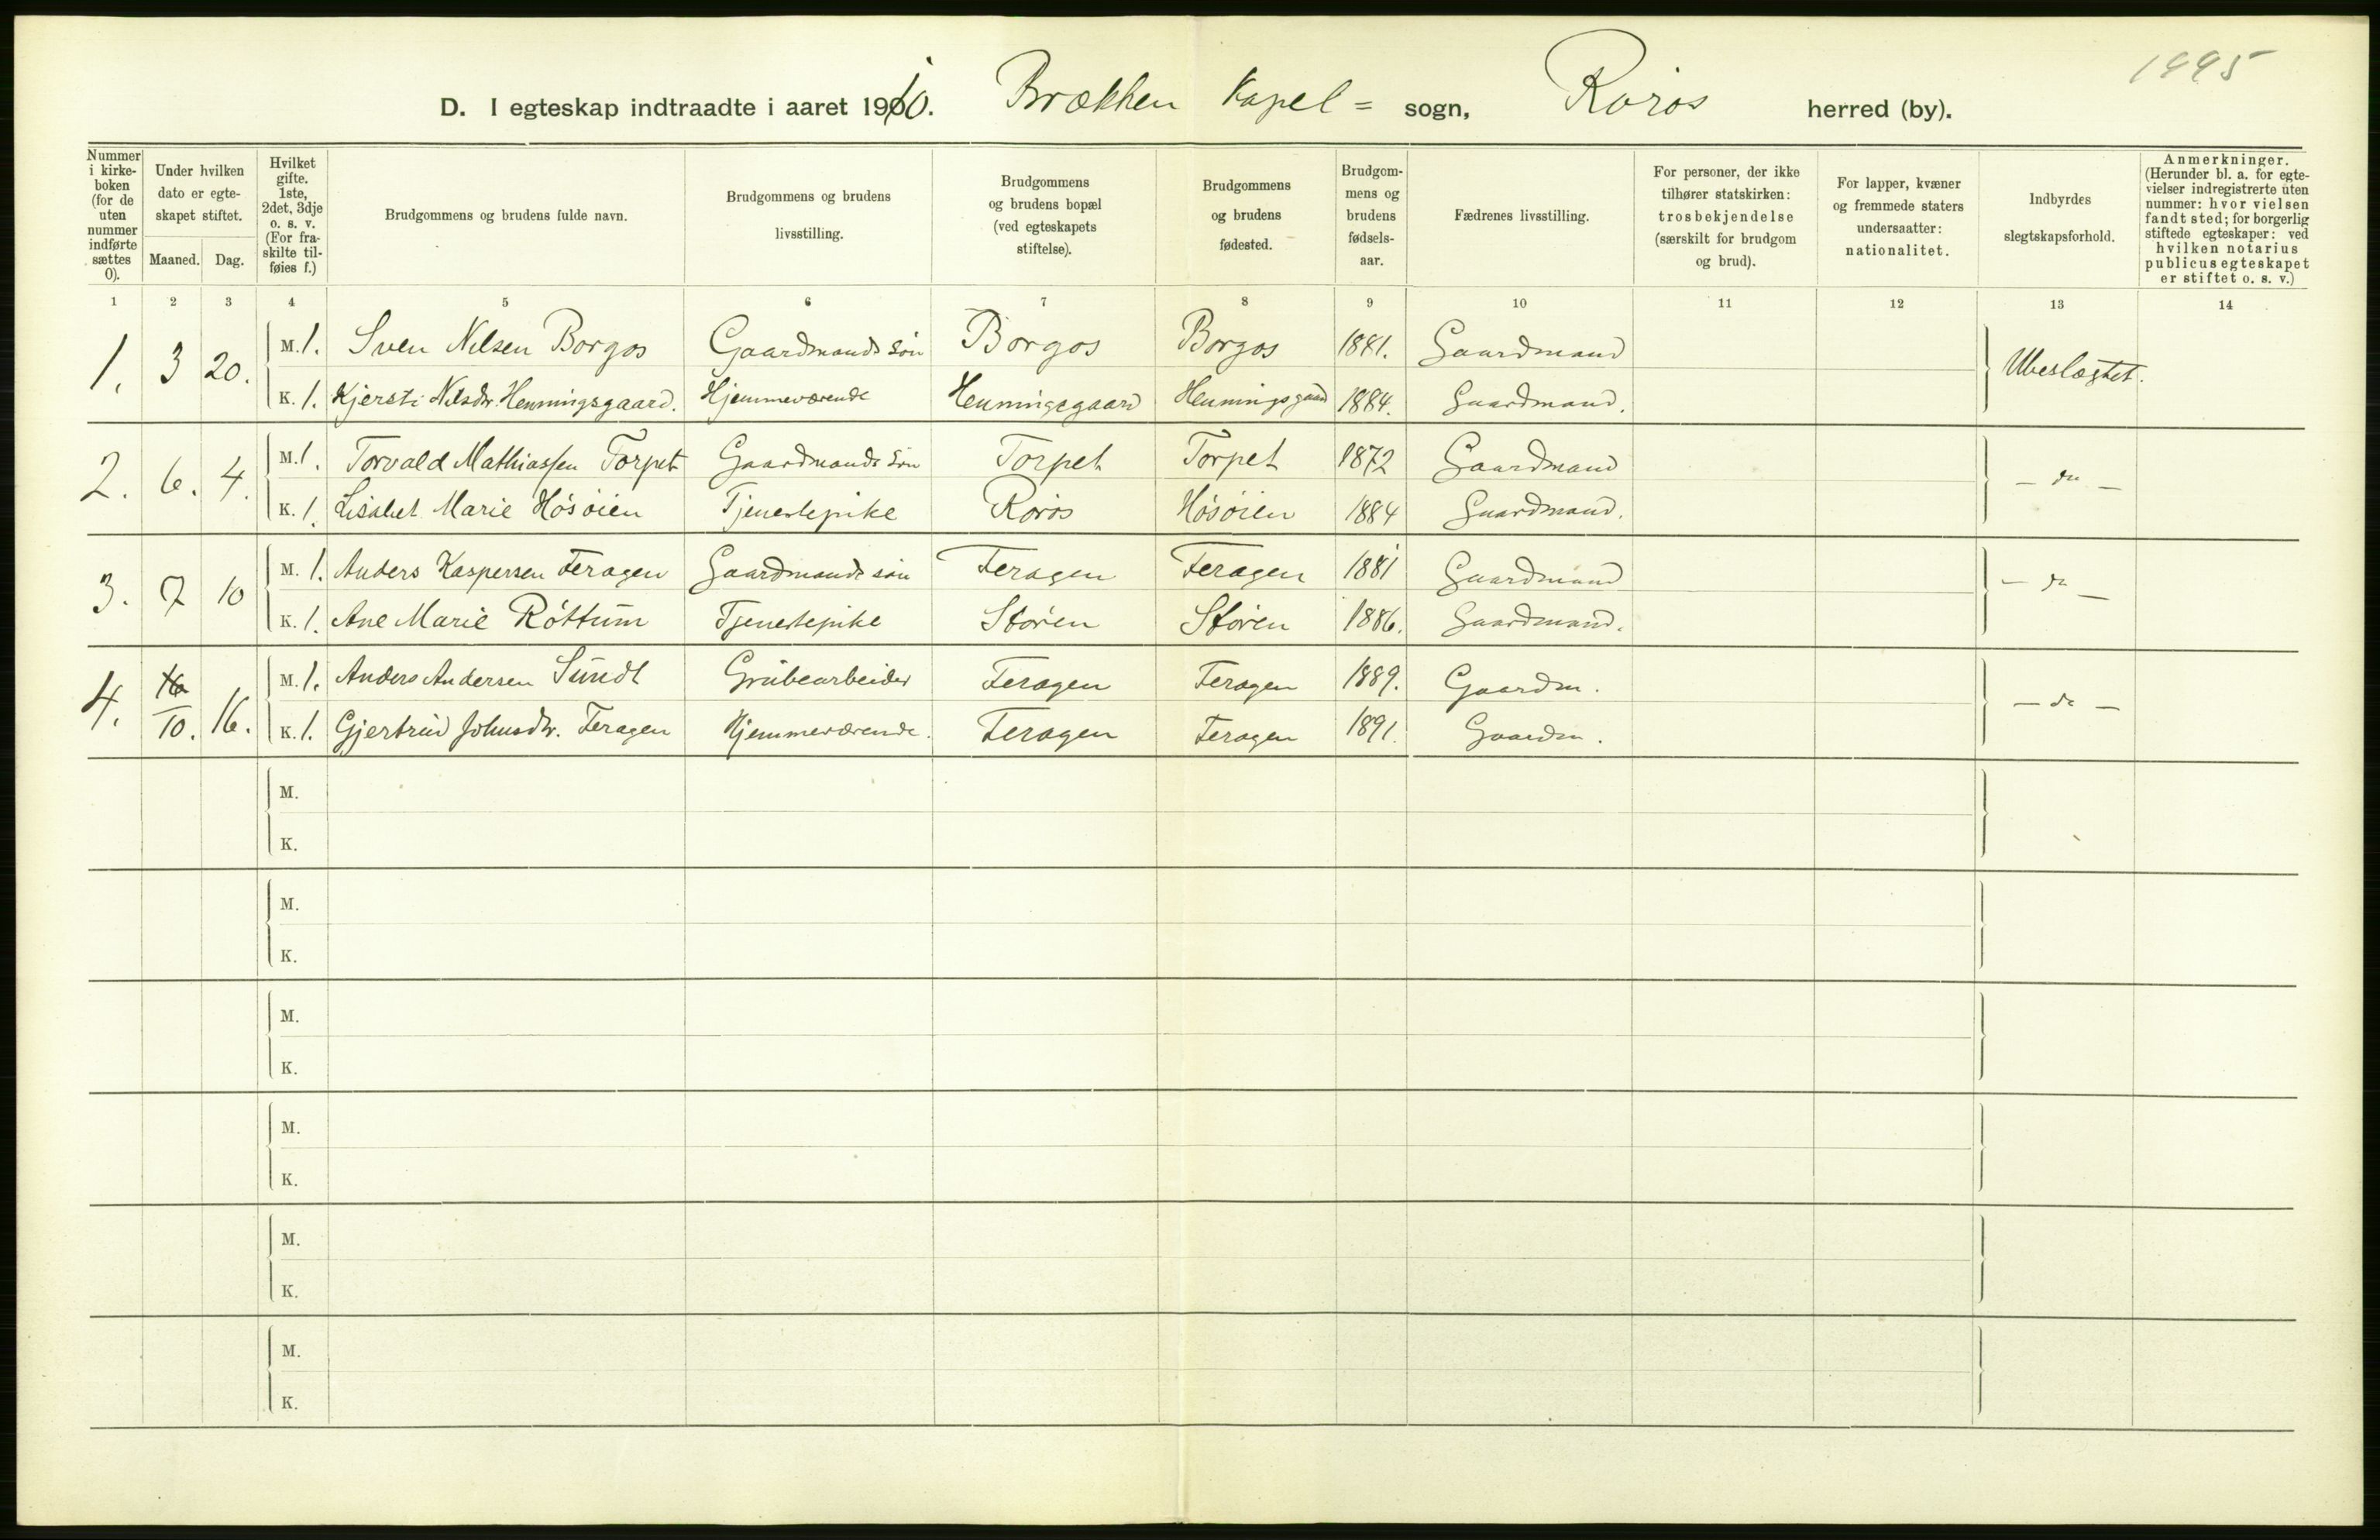 1995
D. I egteskap indtraadte i aaret 1910. Brækken Kapel= sogn, Røros herred (by).
Nummer i kirke-boken (for de uten nummer indførte sættes 0).
Under hvilken dato er egte-skapet stiftet.
Maaned. Dag.
Hvilket gifte. 1ste, 2det, 3dje o. s. v. (For fra-skilte til-føies f.)
Brudgommens og brudens fulde navn.
Brudgommens og brudens livsstilling.
Brudgommens og brudens bopæl (ved egteskapets stiftelse).
Brudgommens og brudens fødested.
Brudgom-mens og brudens fødsels-aar.
Fædrenes livsstilling.
For personer, der ikke tilhører statskirken: trosbekjendelse (særskilt for brudgom og brud).
For lapper, kvæner og fremmede staters undersaatter: nationalitet.
Indbyrdes slegtskapsforhold.
Anmerkninger. (Herunder bl. a. for egte-vielser indregistrerte uten nummer: hvor vielsen fandt sted; for borgerlig stiftede egteskaper: ved hvilken notarius publicus egteskapet er stiftet o. s. v.)
1 2 3 4 5 6 7 8 9 10 11 12 13 14
1. 3 20. M. 1. Sven Nilsen Borgos Gaardmands søn Borgos Borgos 1881. Gaardmand Ubeslægtet.
K. 1. Kjersti Nilsdr. Henningsgaard. Hjemmeværende Henningsgaard Henningsgaard 1884. Gaardmand.
2. 6. 4. M. 1. Torvald Mathiassen Torpet Gaardmands søn Torpet Torpet 1872 Gaardmand — do —
K. 1. Lisabet Marie Høsøien Tjenestepike Røros Høsøien 1884 Gaardmand.
3. 7 10 M. 1. Anders Kaspersen Feragen Gaardmands søn Feragen Feragen 1881 Gaardmand — do —
K. 1. Ane Marie Røttum Tjenestepike Støren Støren 1886. Gaardmand.
4. 16 10. 16. M. 1. Anders Andersen Sundt Grubearbeider Feragen Feragen 1889. Gaardm. — do —
K. 1. Gjertrud Johnsdr. Feragen Hjemmeværende. Feragen Feragen 1891. Gaardm.
M.
K.
M.
K.
M.
K.
M.
K.
M.
K.
M.
K.